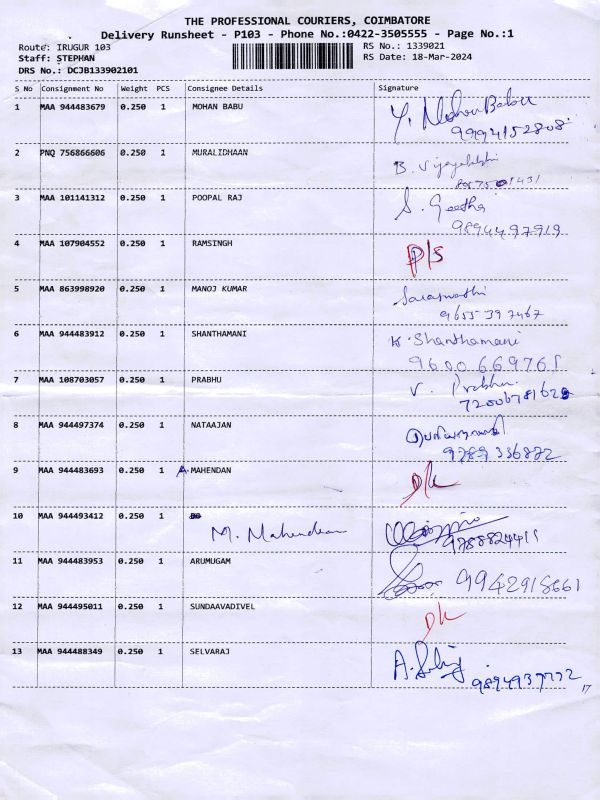 THE PROFESSIONAL COURIERS, COIMBATORE
Delivery Runsheet - P103 - Phone No.:0422-3505555 - Page No.:1
Route: IRUGUR 103
RS No.: 1339021
Staff: STEPHAN
RS Date: 18-Mar-2024
DRS No.: DCJB133902101
S No Consignment No Weight PCS Consignee Details Signature
1 MAA 944483679 0.250 1 MOHAN BABU Y. Mohan Babu
9994152808
2 PNQ 756866606 0.250 1 MURALIDHAAN B. Vijayalakshmi
3 MAA 101141312 0.250 1 POOPAL RAJ S. Geetha
9894497919
4 MAA 107904552 0.250 1 RAMSINGH P/S
5 MAA 863998920 0.250 1 MANOJ KUMAR Saraswathi
9655397467
6 MAA 944483912 0.250 1 SHANTHAMANI K. Shanthamani
9600669761
7 MAA 108703057 0.250 1 PRABHU V. Prabhu
8 MAA 944497374 0.250 1 NATAAJAN
9789336872
9 MAA 944483693 0.250 1 A.MAHENDAN D/L
10 MAA 944493412 0.250 1 M. Mahendran
9788824411
11 MAA 944483953 0.250 1 ARUMUGAM 9942918661
12 MAA 944495011 0.250 1 SUNDAAVADIVEL D/L
13 MAA 944488349 0.250 1 SELVARAJ
9894937772
17